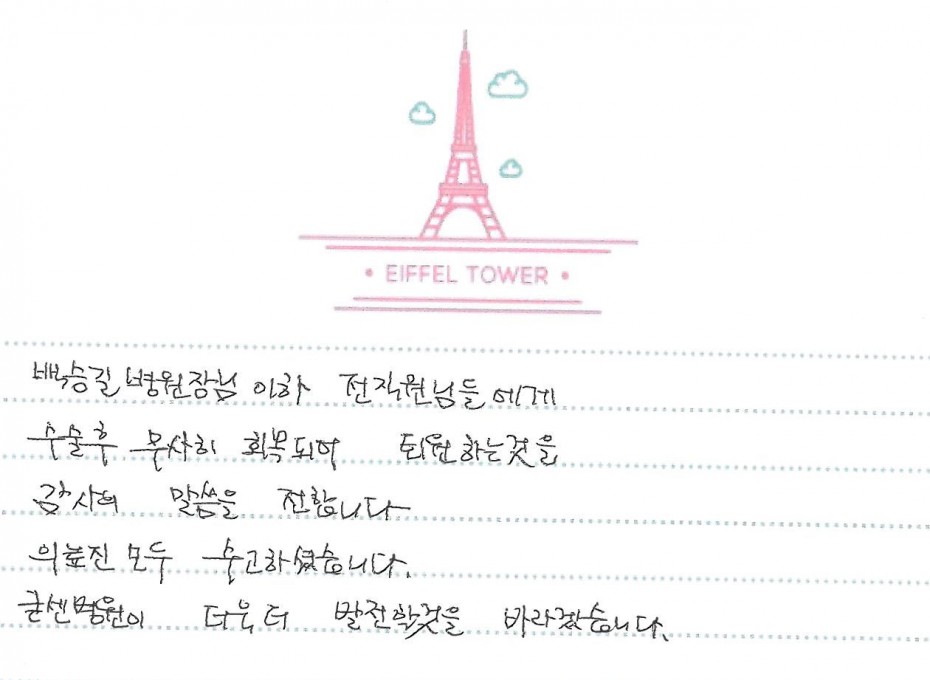 EIFFEL TOWER
백승길 병원장님 이하 전직원님들에게
수술후 무사히 회복되어 퇴원하는것을
감사의 말씀을 전합니다
의료진 모두 수고하셨습니다.
굳센병원이 더욱더 발전할것을 바라겠습니다.